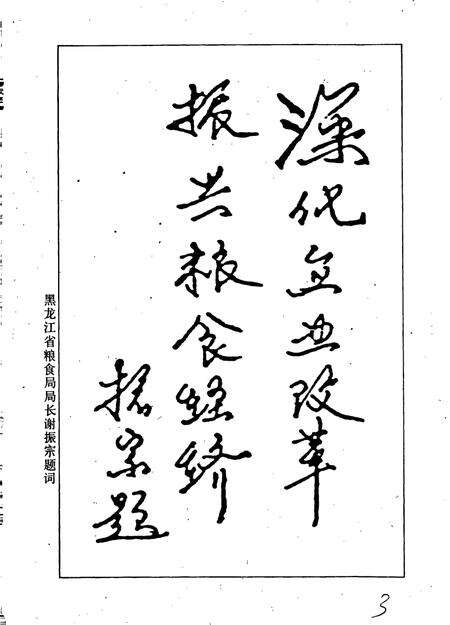 深化企业改革
振兴粮食经济
振宗题
黑龙江省粮食局局长谢振宗题词
3